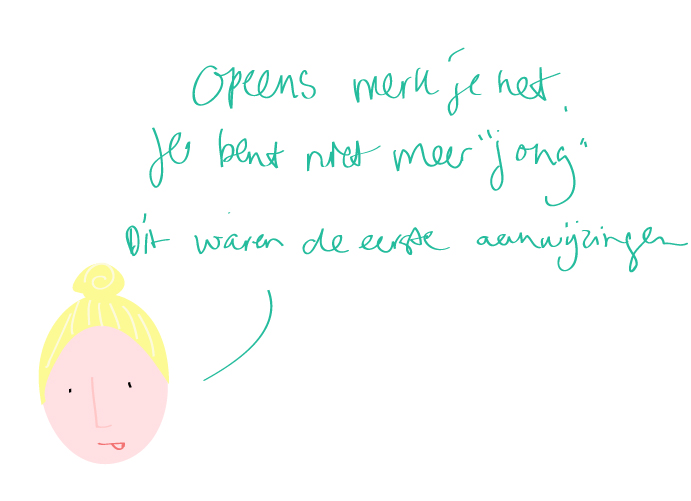 Opeens merk je het.
Je bent niet meer "jong"
Dit waren de eerste aanwijzingen